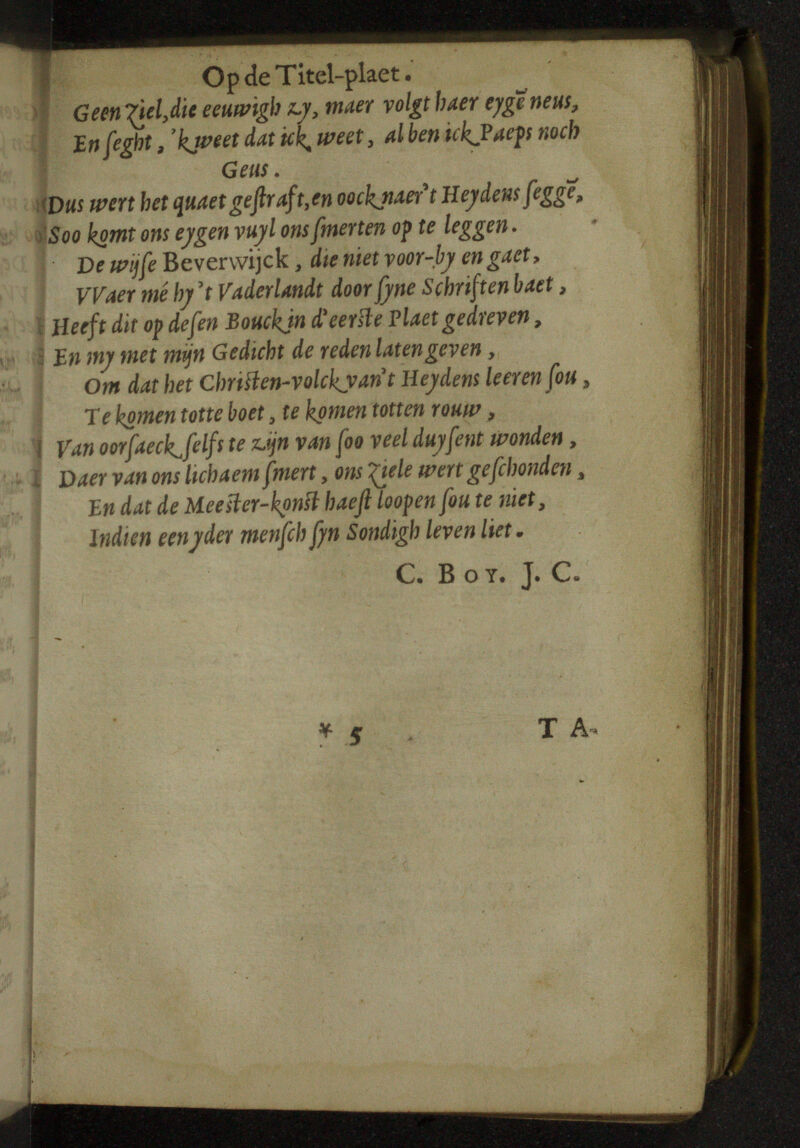 Op de Titel-plaet.
Geen Ziel, die eeuwigh zy, maer volgt haer eygē neus,
En ſeght, 'k weet dat ick weet, al ben ick Paeps noch
Geus.
Dus wert het quaet geſtraft, en oock naer 't Heydens ſeggē,
Soo komt ons eygen vuyl ons ſmerten op te leggen.
De wijſe Beverwijck, die niet voor-by en gaet,
VVaer mé hy 't Vaderlandt door ſyne Schriften baet,
Heeft dit op deſen Bouck in d'eerſte Plaet gedreven,
En my met mijn Gedicht de reden laten geven,
Om dat het Chriſten-volck van 't Heydens leeren ſou,
Te komen totte boet, te komen totten rouw,
Van oorſaeck ſelfs te zijn van ſoo veel duyſent wonden,
Daer van ons lichaem ſmert, ons Ziele wert geſchonden,
En dat de Meeſter-konſt haeſt loopen ſou te niet,
Indien een yder menſch ſyn Sondigh leven liet.
C. Boy. J. C.
* 5 TA-